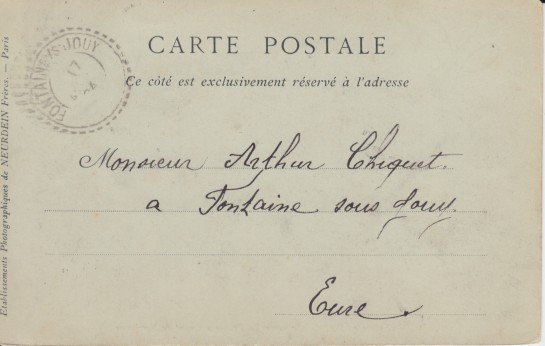 CARTE POSTALE
Ce côté est exclusivement réservé à l'adresse
FONTAINE-S-JOUY
17
Monsieur Arthur Chiquet.
a Fontaine sous Jouy.
Eure.
Etablissements Photographiques de NEURDEIN Frères. — Paris